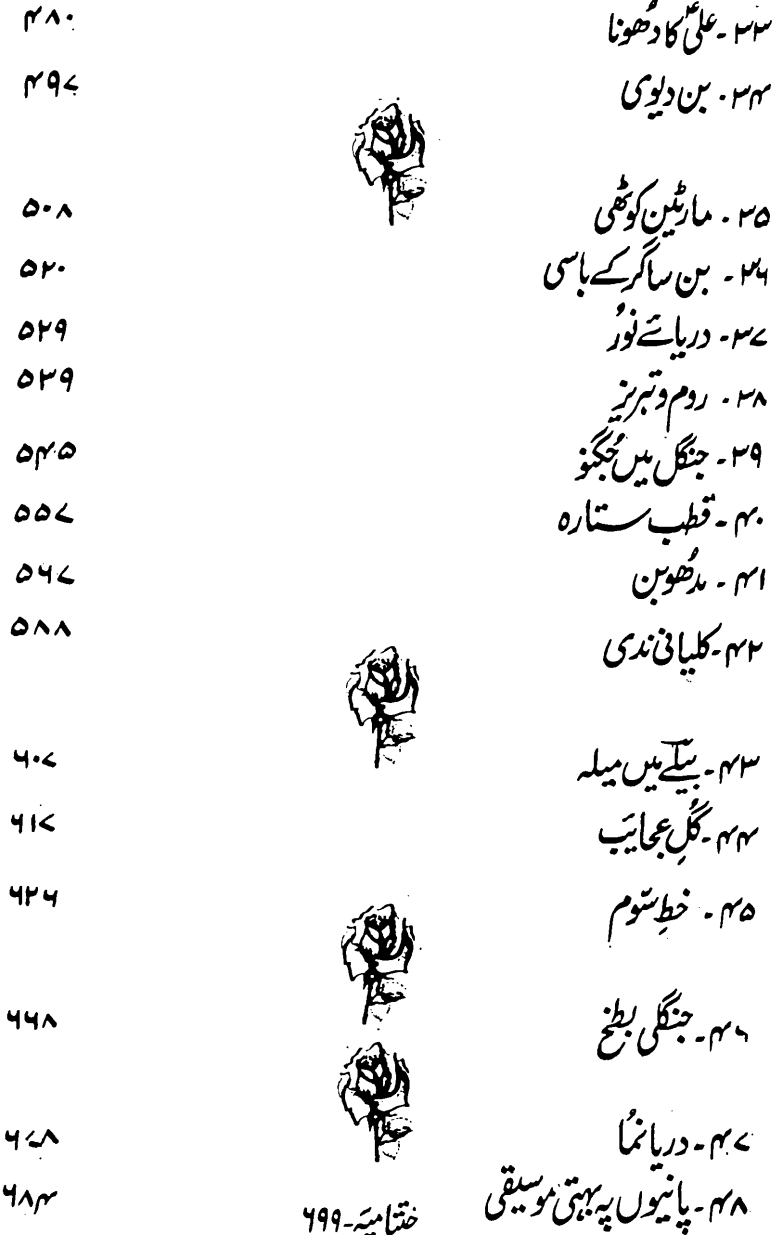 ۳۳۔ علیؑ کا دھونا ۴۸۰
۳۴۔ بن دیوی ۴۹۷
۳۵۔ مارٹین کوٹھی ۵۰۸
۳۶۔ بن ساگر کے باسی ۵۲۰
۳۷۔ دریائے نور ۵۲۹
۳۸۔ روم و تبریز ۵۳۹
۳۹۔ جنگل میں جُگنو ۵۴۵
۴۰۔ قطب ستارہ ۵۵۷
۴۱۔ مدُھوبن ۵۶۷
۴۲۔ کلیانی ندی ۵۸۸
۴۳۔ بیلے میں میلہ ۶۰۷
۴۴۔ گُلِ عجایٔب ۶۱۷
۴۵۔ خطِ سوّم ۶۲۶
۴۶۔ جنگلی بطخ ۶۶۸
۴۷۔ دریا نمُا ۶۷۸
۴۸۔ پانیوں پہ بہتی موسیقی ۶۸۴
ختتامیہ۔ ۶۹۹